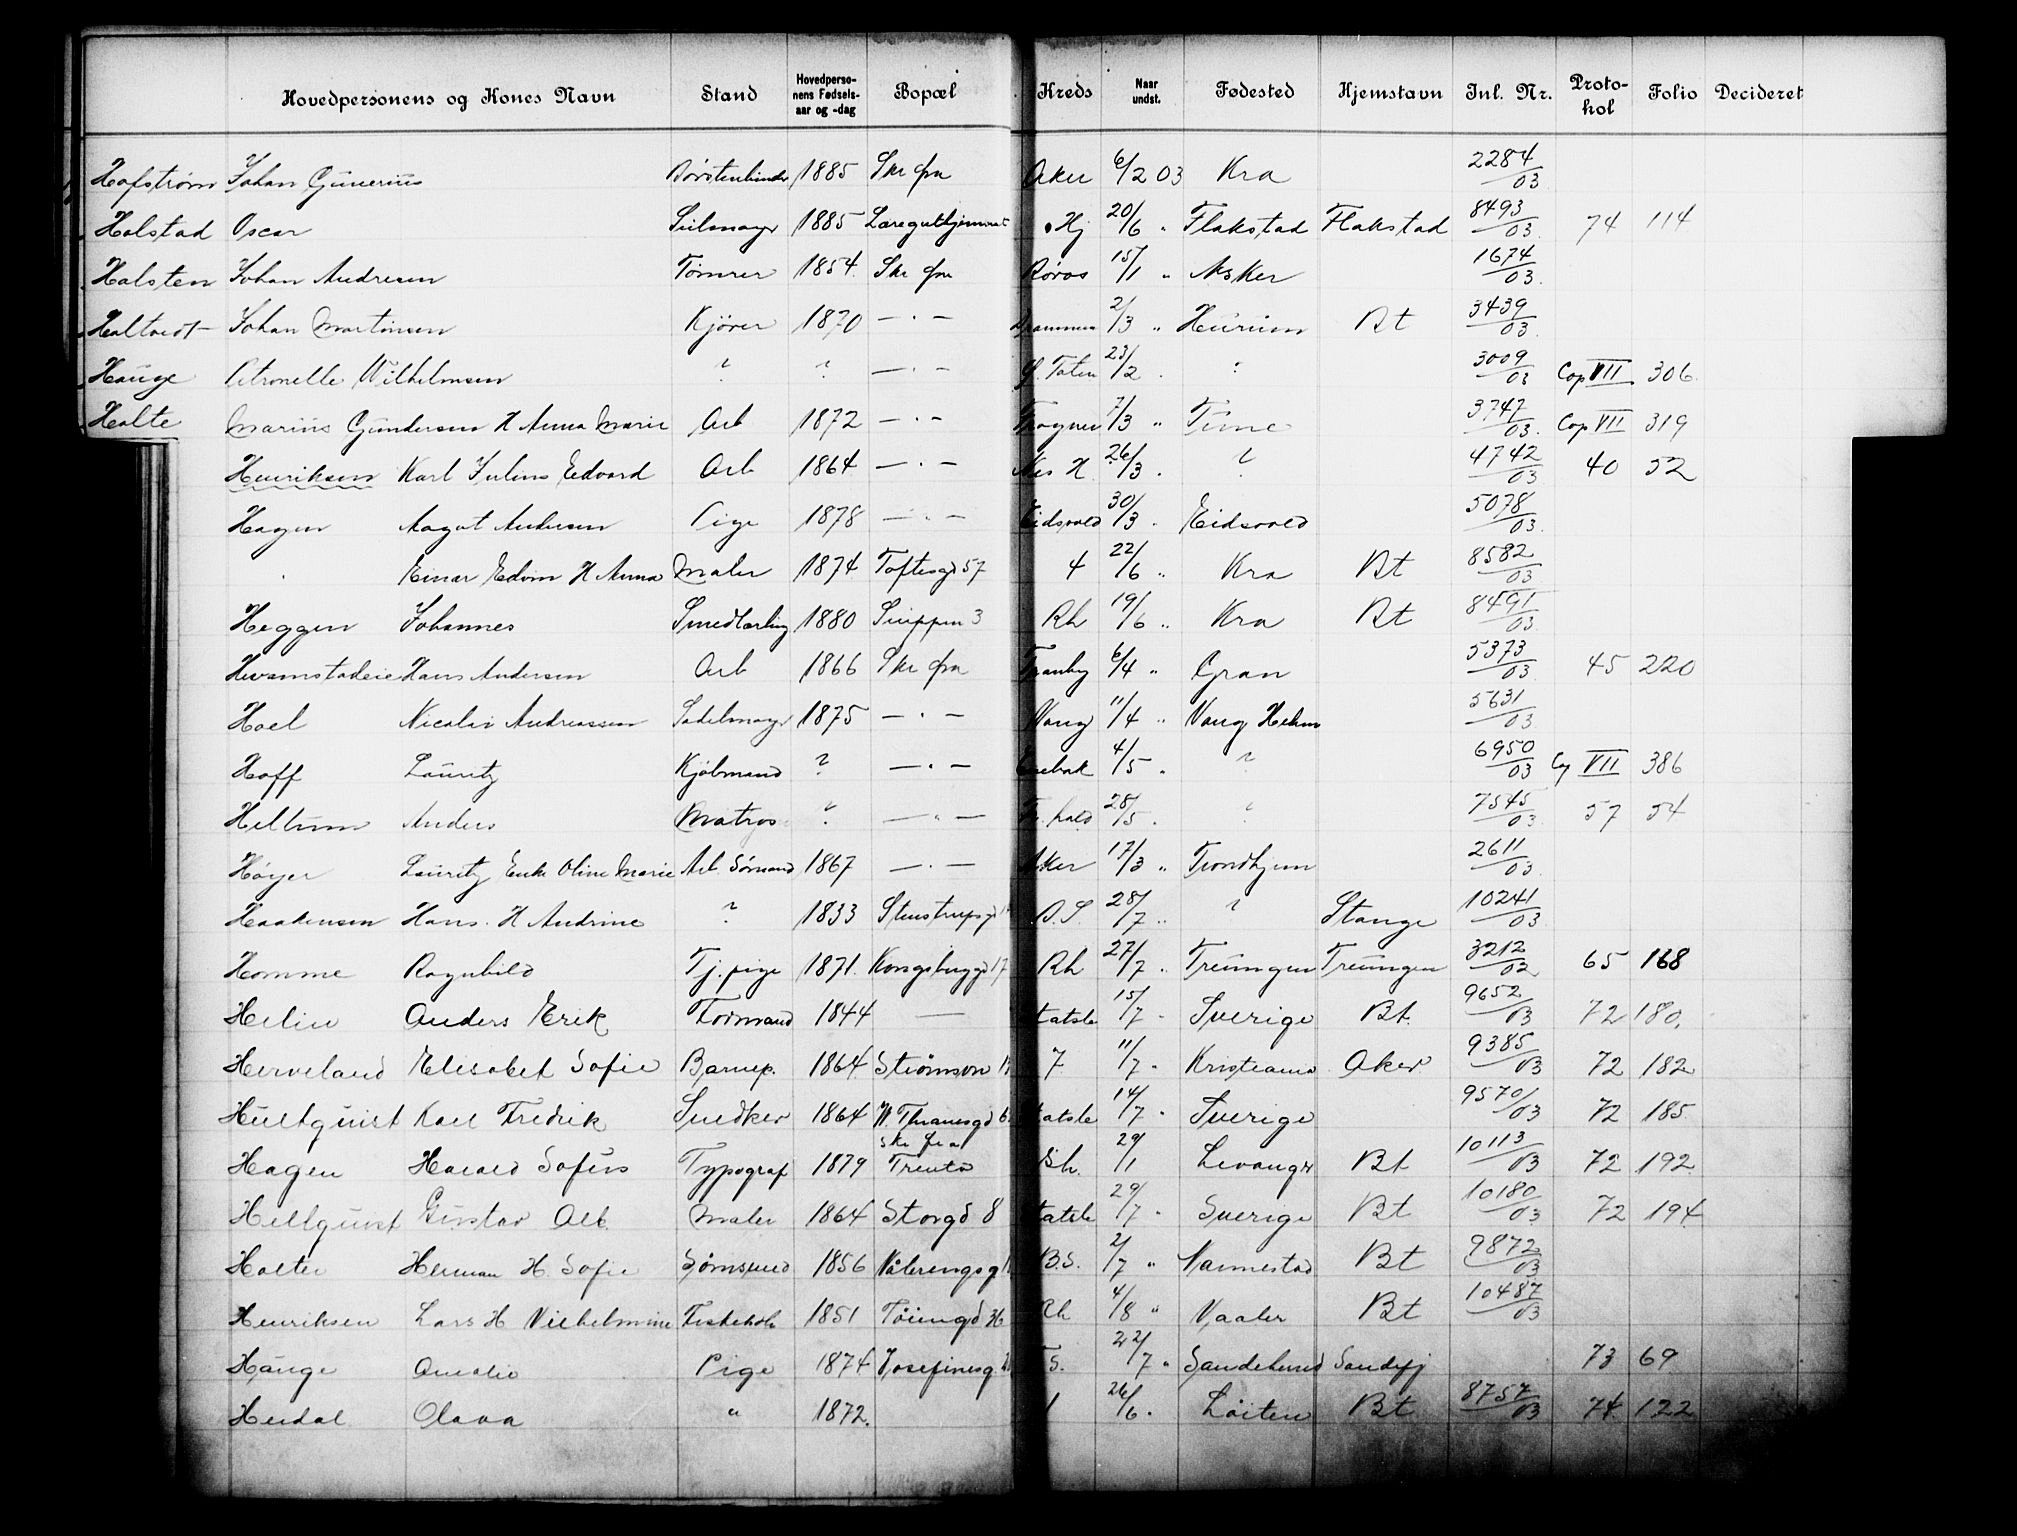 Hovedpersonens og Kones Navn Stand Hovedpersonens Fødsels-aar og -dag Bopæl Kreds Naar undst. Fødested Hjemstavn Inl. Nr. Protokol Folio Decideret
Hafstrøm Johan Gunerius Børstenbinder 1885 Skr fra Aker 6/2 03 Kra 2284/03
Halstad Oscar Seilmager 1885 Læreguthjemmet Hj 20/6 " Flakstad Flakstad 8493/03 74 114
Halsten Johan Andresen Tømrer 1854 Skr fra Røros 15/1 " Asker 1674/03
Holtvedt Johan Martinsen Kjører 1870 — " — Drammen 2/3 " Hurum Bt 3439/03
Hauge Petronelle Wilhelmsen ? ? — " — Ø. Toten 23/2 . ? 3009/03 Cop VII 306
Holte Marius Gundersen H Anna Marie Arb 1872 — " — Frogner 7/3 " Tune 3747/03 Cop VII 319
Henriksen Karl Julius Edvard Arb 1864 — " — Nes H. 26/3 . ? 4742/03 40 52
Hagen Aagot Andersen Pige 1878 — " — Eidsvold 30/3 . Eidsvold 5078/03
" Einar Edvin H Anna Maler 1874 Toftesgd 57 4 22/6 " Kra Bt 8582/03
Heggen Johannes Smedlærling 1880 Snippen 3 Rh 19/6 " Kra Bt 8491/03
Hvamstadeie Hans Andersen Arb 1866 Skr fra Tranby 6/4 " Gran 5373/03 45 220
Hoel Nicolai Andreassen Sadelmager 1875 — " — Vang 11/4 " Vang Hedm 5631/03
Hoff Lauritz Kjøbmand ? — " — Enebak 4/5 " ? 6950/03 Cop VII 386
Hellum Anders Matros ? — " — Fr. hald 28/5 . ? 7545/03 57 54
Høyer Lauritz Enke Oline Marie Arb. Sømand 1867 — " — Aker 17/3 " Trondhjem 2611/03
Haakensen Hans. H Andrine ? 1833 Stenstrupsgd B.S. 28/7 " ? Stange 10241/03
Homme Ragnhild Tj. pige 1871. Kongsbyggd 17 Rh 27/7 " Treungen Treungen 3212/02 65 168
Helin Anders Erik Formand 1844 — tatsb 15/7 - Sverige Bt. 9652/03 72 180.
Herveland Elisabet Sofie Barnep. 1864 Strømsvn 7 11/7 - Kristiania Aker 9385/03 72 182
Hultquist Karl Fredrik Snedker 1864 W. Thranesgd 6 tatsb 14/7 - Sverige 9570/03 72 185
Hagen Harald Sofus Typograf 1879 Skr fra Trento Sh. 29/1 Levanger Bt 10113/03 72 192
Hellquist Gustav Alb. Maler 1864 Storgd 8 tatsb 29/7 - Sverige Bt 10180/03 72 194
Holter Herman H. Sofie Tømsvend 1856 Vålerengsg B.S. 2/7 " Nannestad Bt 9872/03
Henriksen Lars H Vilhelmine Fiskehdl 1851 Tøiengd 36 Rh 4/8 " Vaaler Bt 10487/03
Hauge Amalie Pige 1874 Josefinesg S. 22/7 " Sandeherred Sandefj 73 69
Heidal Olava " 1872. 1 26/6 . Løiten Bt 8757/03 74 122